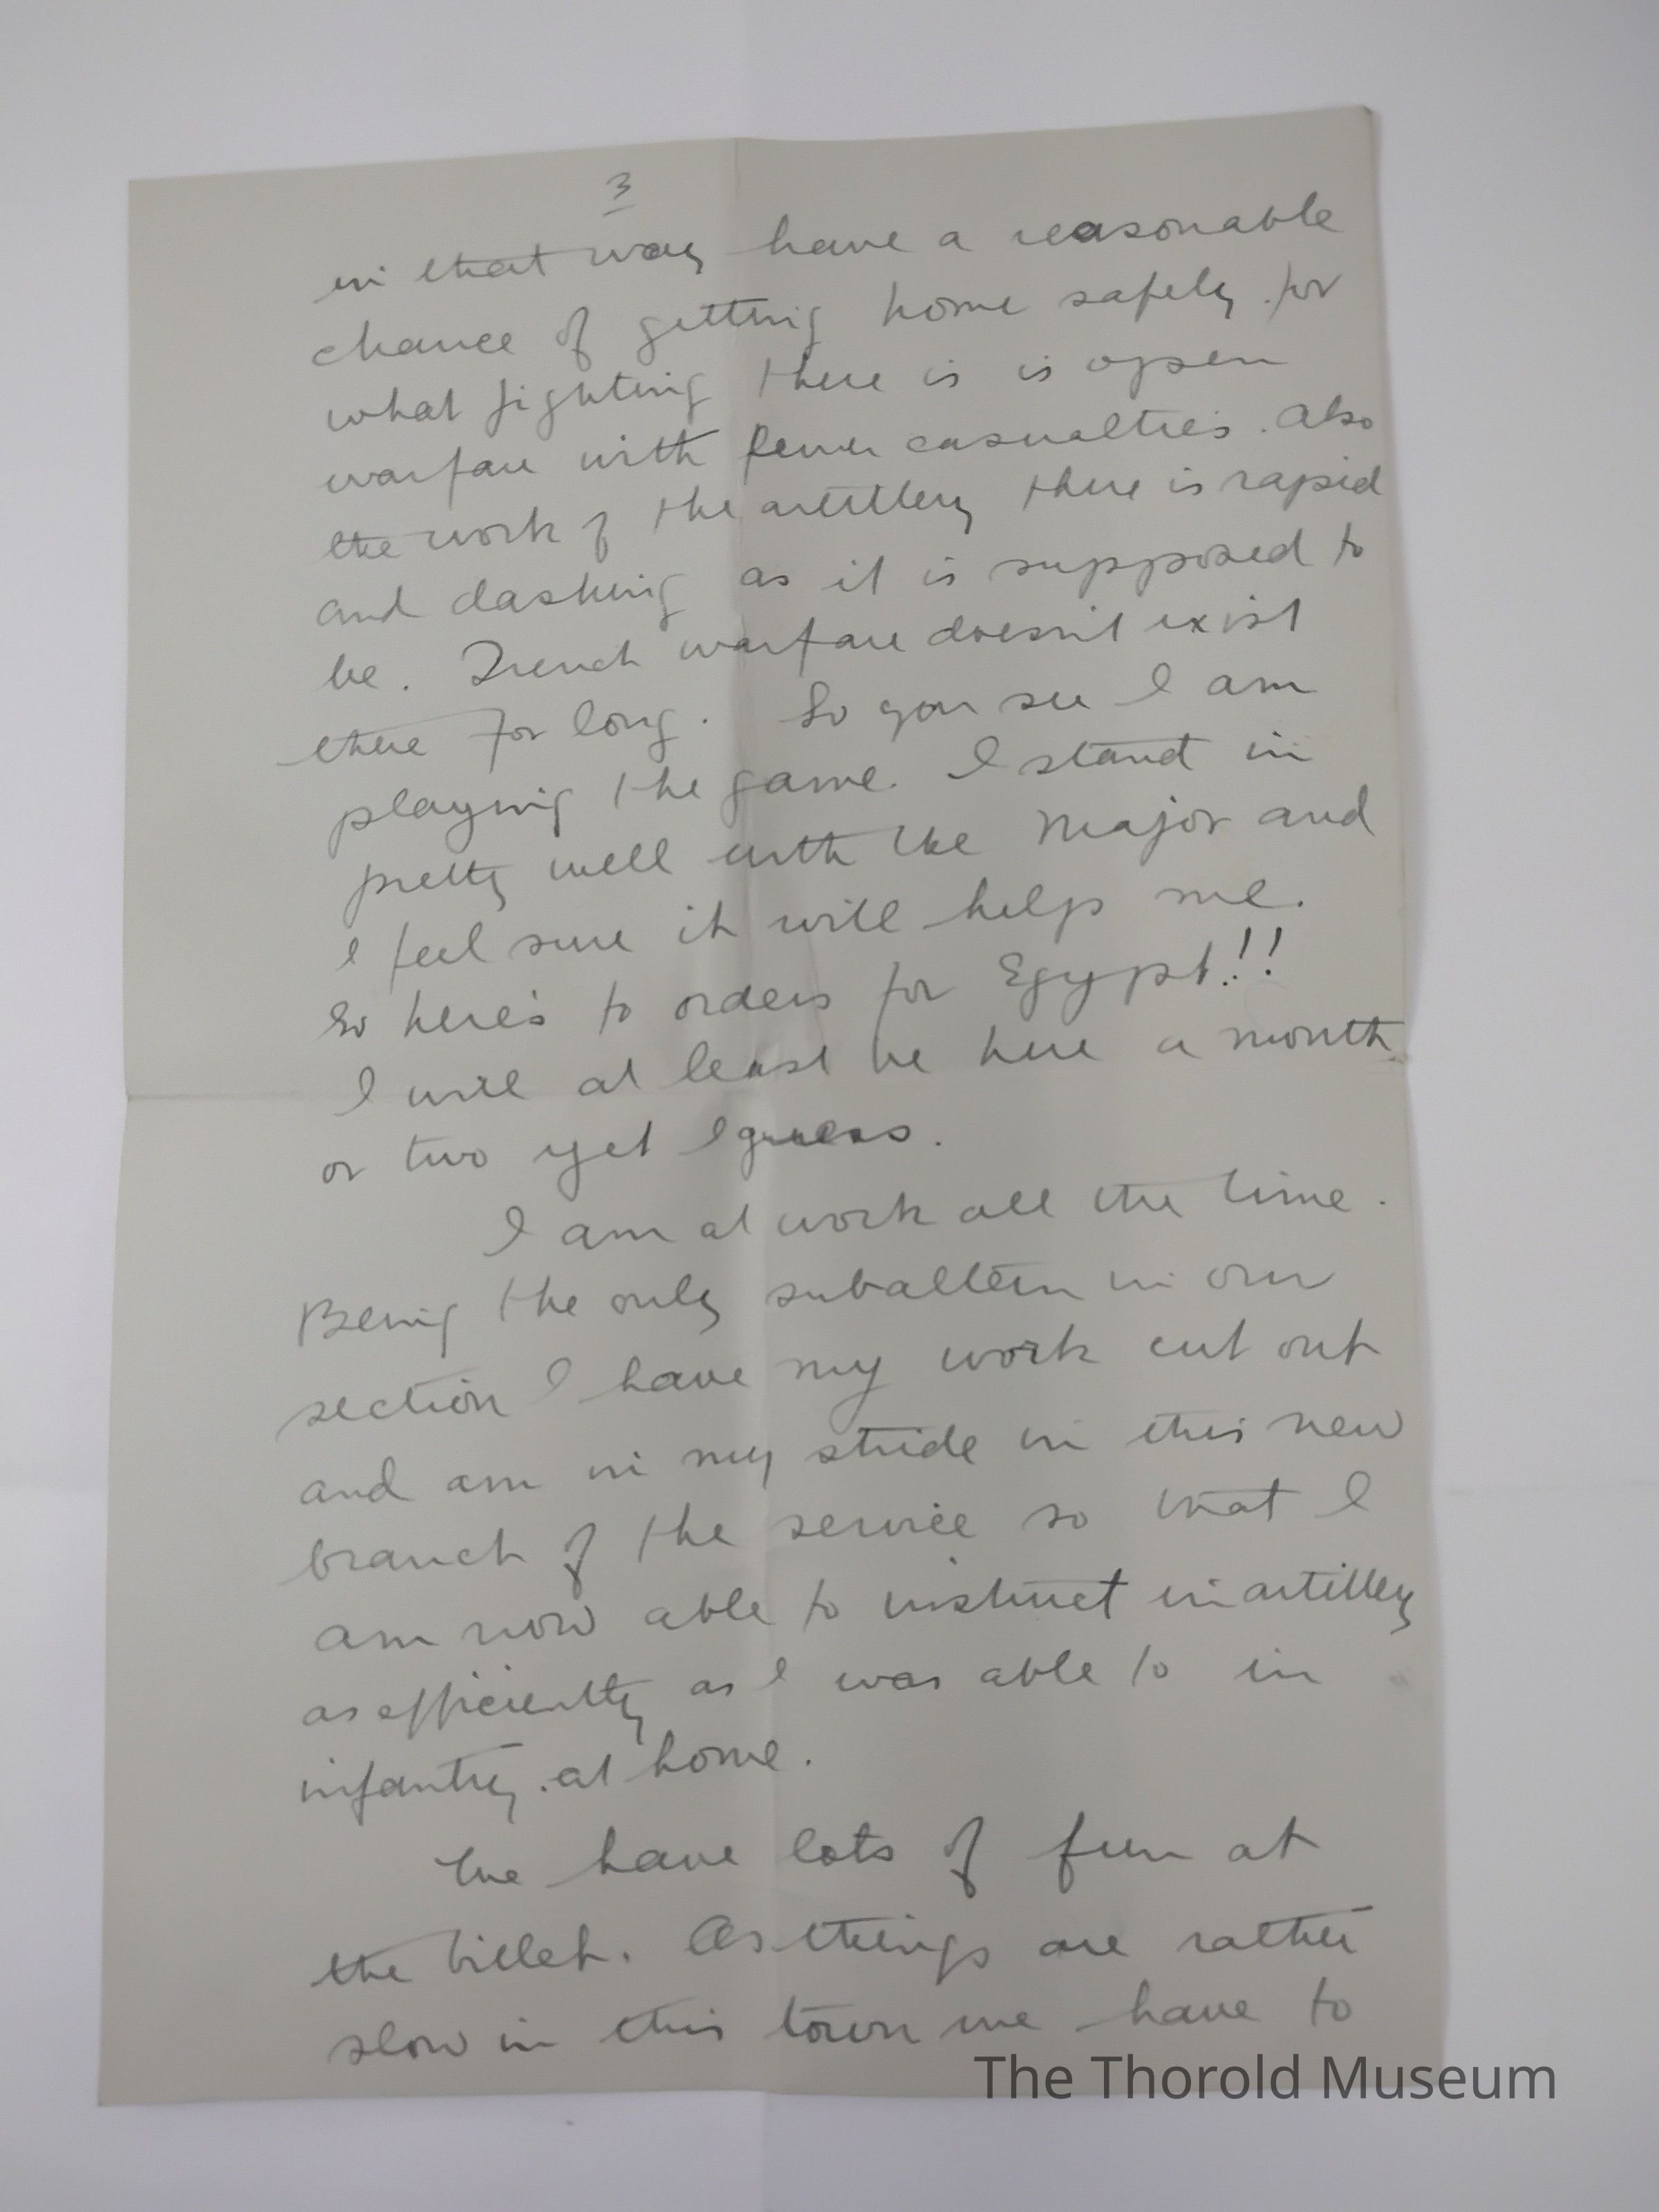 3
in that way have a reasonable
chance of getting home safely for
what fighting there is is open
warfare with fewer casualties. Also
the work of the artillery there is rapid
and dashing as it is supposed to
be. Trench warfare doesn't exist
there for long. So you see I am
playing the game. I stand in
pretty well with the Major and
I feel sure it will help me.
So here's to orders for Egypt!!
I will at least be here a month
or two yet I guess.
I am at work all the time.
Being the only subaltern in our
section I have my work cut out
and am in my stride in this new
branch of the service so that I
am now able to instruct in artillery
as efficiently as I was able to in
infantry at home.
We have lots of fun at
the billet. As things are rather
slow in this town we have to
The Thorold Museum